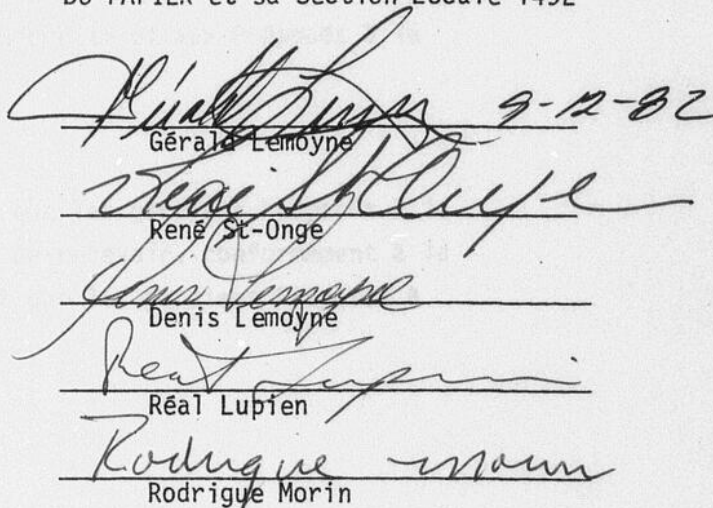 DU PAPIER et sa Section Locale 1492
Gérald Lemoyne 9-12-82
Gérald Lemoyne
René St-Onge
René St-Onge
Denis Lemoyne
Denis Lemoyne
Réal Lupien
Réal Lupien
Rodrigue Morin
Rodrigue Morin